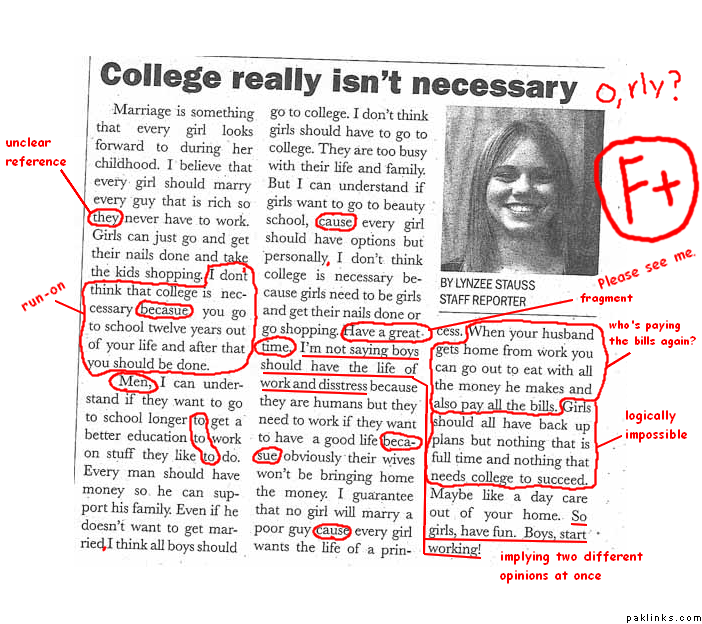 College really isn't necessary
o,rly?
F+
Please see me.
unclear
reference
run-on
Marriage is something
that every girl looks
forward to during her
childhood. I believe that
every girl should marry
every guy that is rich so
they never have to work.
Girls can just go and get
their nails done and take
the kids shopping. I don't
think that college is nec-
cessary becasue you go
to school twelve years out
of your life and after that
you should be done.
Men, I can under-
stand if they want to go
to school longer to get a
better education to work
on stuff they like to do.
Every man should have
money so he can sup-
port his family. Even if he
doesn't want to get mar-
ried, I think all boys should
go to college. I don't think
girls should have to go to
college. They are too busy
with their life and family.
But I can understand if
girls want to go to beauty
school, cause every girl
should have options but
personally, I don't think
college is necessary be-
cause girls need to be girls
and get their nails done or
go shopping. Have a great
time. I'm not saying boys
should have the life of
work and disstress because
they are humans but they
need to work if they want
to have a good life beca-
sue obviously their wives
won't be bringing home
the money. I guarantee
that no girl will marry a
poor guy cause every girl
wants the life of a prin-
BY LYNZEE STAUSS
STAFF REPORTER
fragment
cess. When your husband
gets home from work you
can go out to eat with all
the money he makes and
also pay all the bills. Girls
should all have back up
plans but nothing that is
full time and nothing that
needs college to succeed.
Maybe like a day care
out of your home. So
girls, have fun. Boys, start
working!
who's paying
the bills again?
logically
impossible
implying two different
opinions at once
paklinks.com